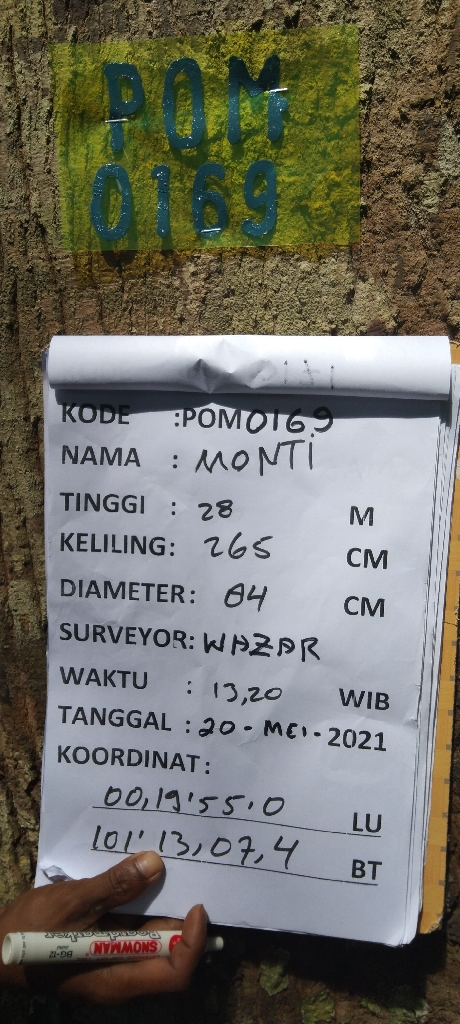 POM
0169
KODE :POM0169
NAMA : MONTI
TINGGI : 28 M
KELILING: 265 CM
DIAMETER: 84 CM
SURVEYOR: WAZAR
WAKTU : 13,20 WIB
TANGGAL : 20 - MEI - 2021
KOORDINAT:
00,19'55.0 LU
101' 13,07,4 BT
SNOWMAN
BG-12
Boardmarker